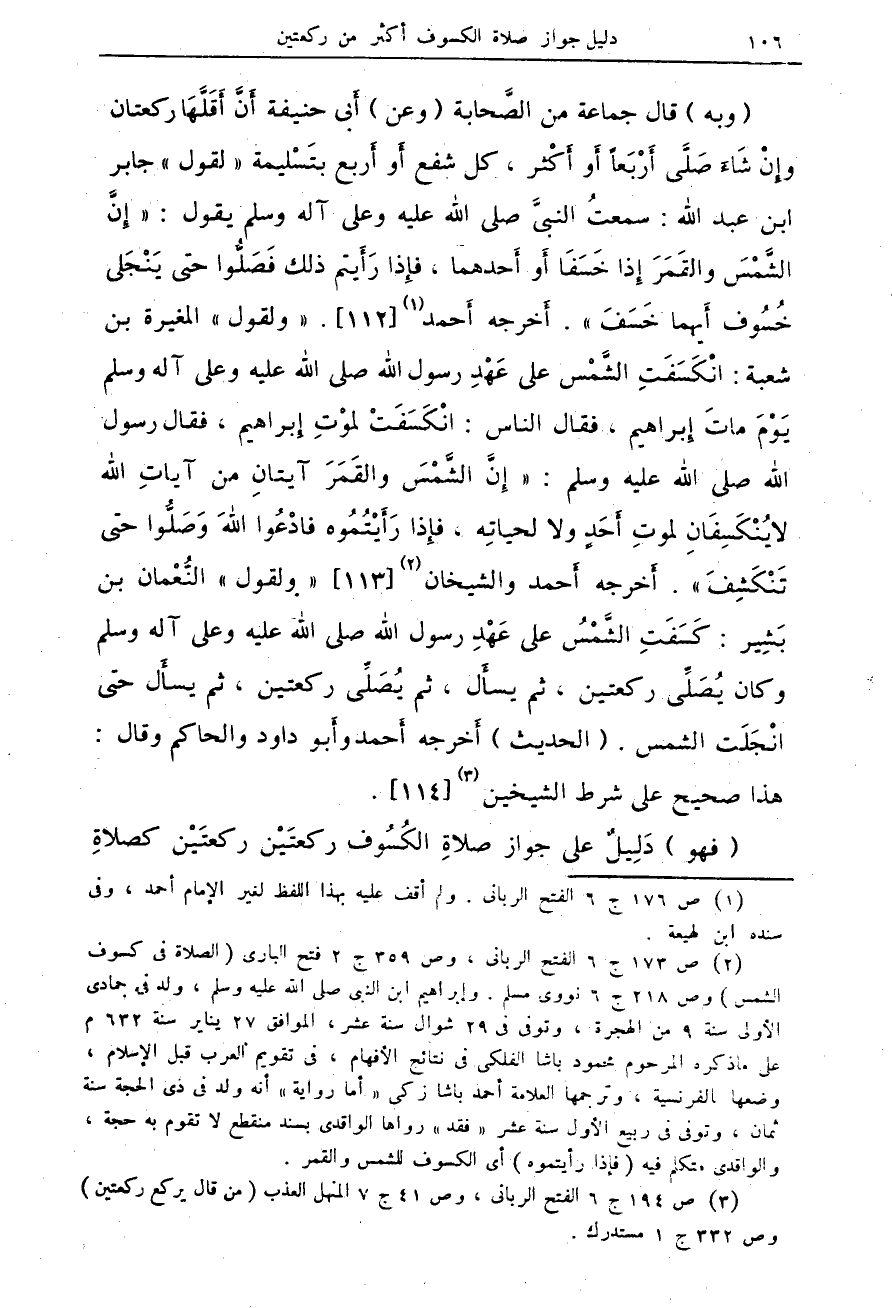 ١٠٦ دليل جواز صلاة الكسوف أكثر من ركعتين
( وبه ) قال جماعة من الصَّحابة ( وعن ) أَبى حنيفة أَنَّ أَقَلَّهَا ركعتان
وإِنْ شَاءَ صَلَّى أَرْبَعاً أَو أَكْثر ، كل شفع أَو أَربع بتَسْليمة « لقول » جابر
ابن عبد الله : سمعتُ النبىَّ صلى الله عليه وعلى آله وسلم يقول : « إِنَّ
الشَّمْسَ والقَمَرَ إِذا خَسَفَا أَو أَحدهما ، فإِذا رَأَيتم ذلك فَصَلُّوا حتى يَنْجَلى
خُسُوف أَيهما خَسَفَ » . أَخرجه أَحمد(١) [١١٢] . « ولقول » المغيرة بن
شعبة : انْكَسَفَتِ الشَّمْس على عَهْدِ رسول الله صلى الله عليه وعلى آله وسلم
يَوْمَ ماتَ إِبراهيم ، فقال الناس : انْكَسَفَتْ لموْتِ إِبراهيم ، فقال رسول
الله صلى الله عليه وسلم : « إِنَّ الشَّمْسَ والقَمَرَ آيتانِ من آياتِ الله
لايُنْكَسِفَانِ لموتِ أَحَدٍ ولا لحياتِه ، فإِذا رَأَيْتُمُوه فادْعُوا اللهَ وَصَلُّوا حتى
تَنْكَشِفَ » . أَخرجه أَحمد والشيخان(٢) [١١٣] « ولقول » النُّعْمان بن
بَشِير : كَسَفَتِ الشَّمْسُ على عَهْدِ رسول الله صلى الله عليه وعلى آله وسلم
وكان يُصَلِّى ركعتين ، ثم يسأَل ، ثم يُصَلِّى ركعتين ، ثم يسأَل حتى
انْجَلَت الشمس . ( الحديث ) أَخرجه أَحمد وأَبو داود والحاكم وقال :
هذا صحيح على شرط الشيخين(٣) [١١٤] .
( فهو ) دَلِيلٌ على جواز صلاةِ الكُسُوف ركعتَيْن ركعتَيْن كصلاةِ
(١) ص ١٧٦ ج ٦ الفتح الربانى . ولم أقف عليه بهذا اللفظ لغير الإمام أحمد ، وفى
سنده ابن لهيعة .
(٢) ص ١٧٣ ج ٦ الفتح الربانى ، وص ٣٥٩ ج ٢ فتح البارى ( الصلاة فى كسوف
الشمس ) وص ٢١٨ ج ٦ نووى مسلم . وإبراهيم ابن النبى صلى الله عليه وسلم ، ولد فى جمادى
الأولى سنة ٩ من الهجرة ، وتوفى فى ٢٩ شوال سنة عشر ، الموافق ٢٧ يناير سنة ٦٣٢ م
على ماذكره المرحوم محمود باشا الفلكى فى نتائج الأفهام ، فى تقويم العرب قبل الإسلام ،
وضعها بالفرنسية ، وترجمها العلامة أحمد باشا زكى « أما رواية » أنه ولد فى ذى الحجة سنة
ثمان ، وتوفى فى ربيع الأول سنة عشر « فقد » رواها الواقدى بسند منقطع لا تقوم به حجة ،
والواقدى متكلم فيه ( فإذا رأيتموه ) أى الكسوف للشمس والقمر .
(٣) ص ١٩٤ ج ٦ الفتح الربانى ، وص ٤١ ج ٧ المنهل العذب ( من قال يركع ركعتين )
وص ٣٣٢ ج ١ مستدرك .